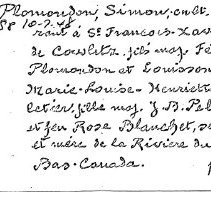 Plomondon, Simon, cult.
58 10-7-48.
rant à St Francois-Xav
de Cowlitz, fils maj. Fé
Plomondon et Louison
Marie-Louise-Henriett
letier, fille maj. J. B. Pel
et feu Rose Blanchet, se
et mère de la Rivière du
Bas-Canada.